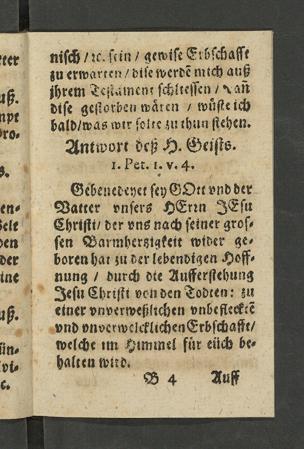 nisch / ꝛc. sein / gewise Erbschafft
zu erwarten / dise werdẽ mich auß
jhrem Testament schliessen /
dise gestorben wären / wüste ich
bald / was mir solte zu thun stehen.
Antwort deß H. Geists.
1. Pet. 1. v. 4.
Gebenedeyet sey GOtt vnd der
Vatter vnsers HErrn JEsu
Christi / der vns nach seiner gros-
sen Barmherzigkeit wider ge-
boren hat zu der lebendigen Hoff-
nung / durch die Aufferstehung
Jesu Christi von den Todten: zu
einer vnverweßlichen vnbeflecktẽ
vnd vnverwelcklichen Erbschafft /
welche im Himmel für eüch be-
halten wird.
B 4 Auff